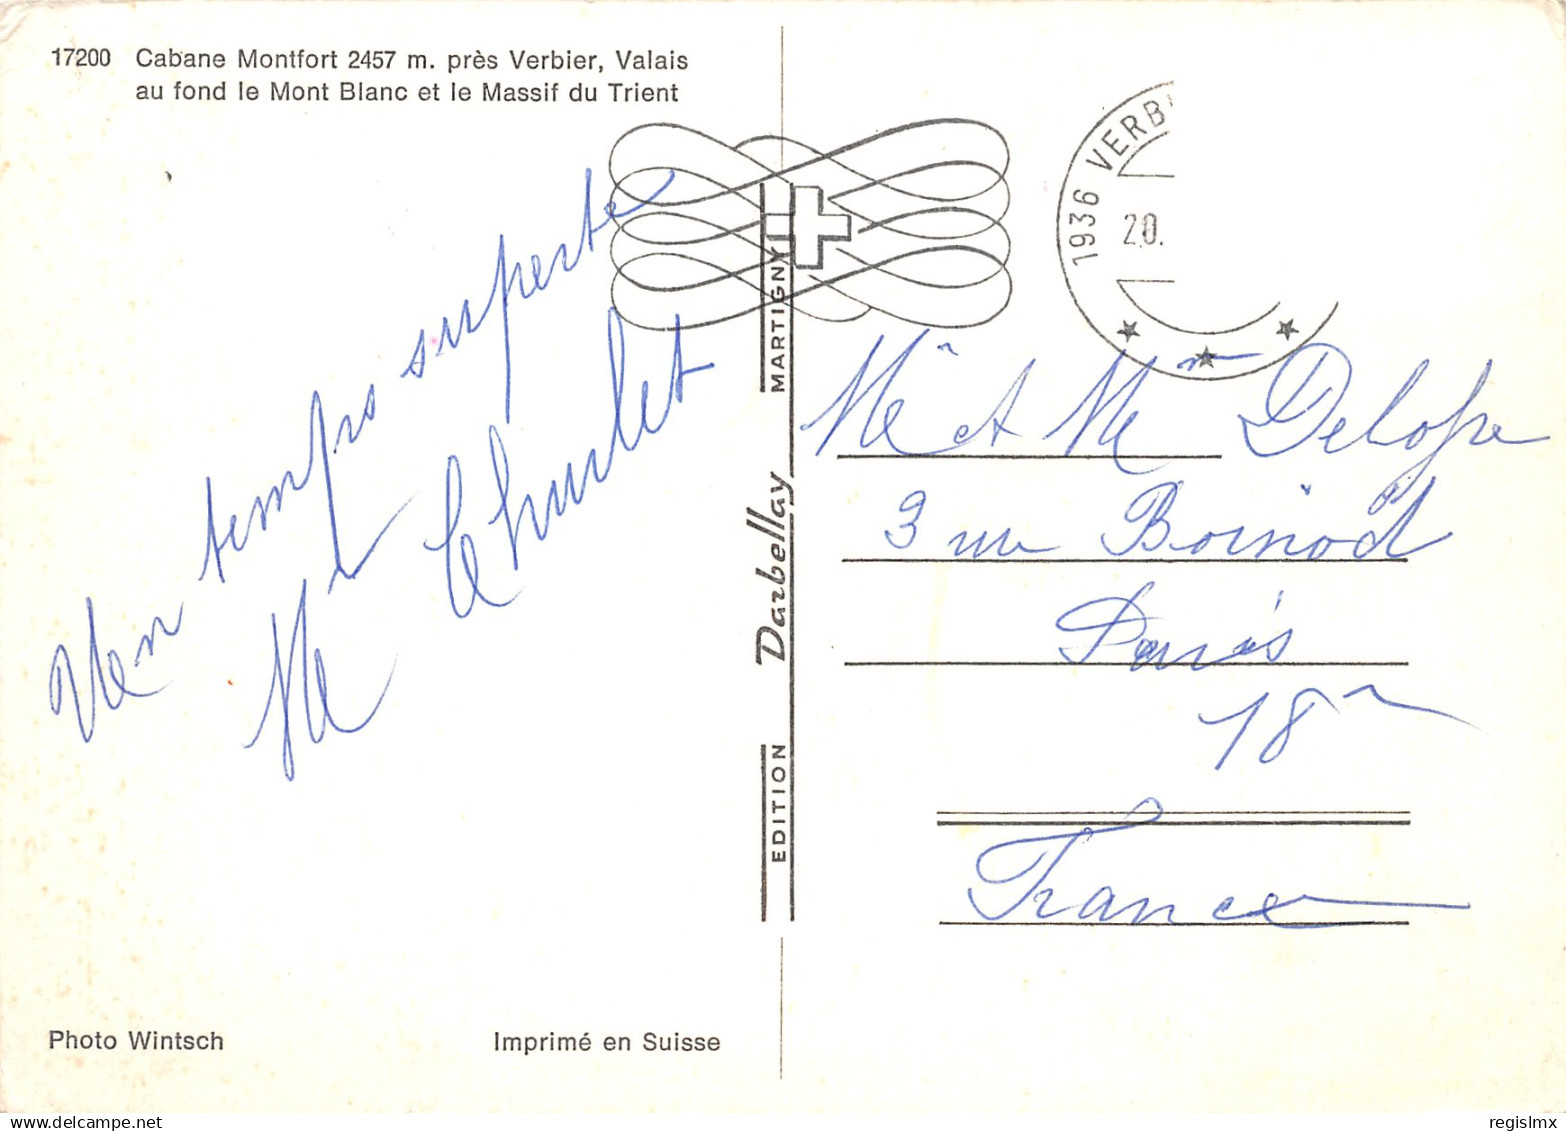 17200 Cabane Montfort 2457 m. près Verbier, Valais
au fond le Mont Blanc et le Massif du Trient
temps superbe
1936 VERB
20.
EDITION Darbellay MARTIGNY
Me et Mm
3 rue Boinod
Paris
18
France
Photo Wintsch
Imprimé en Suisse
regislmx